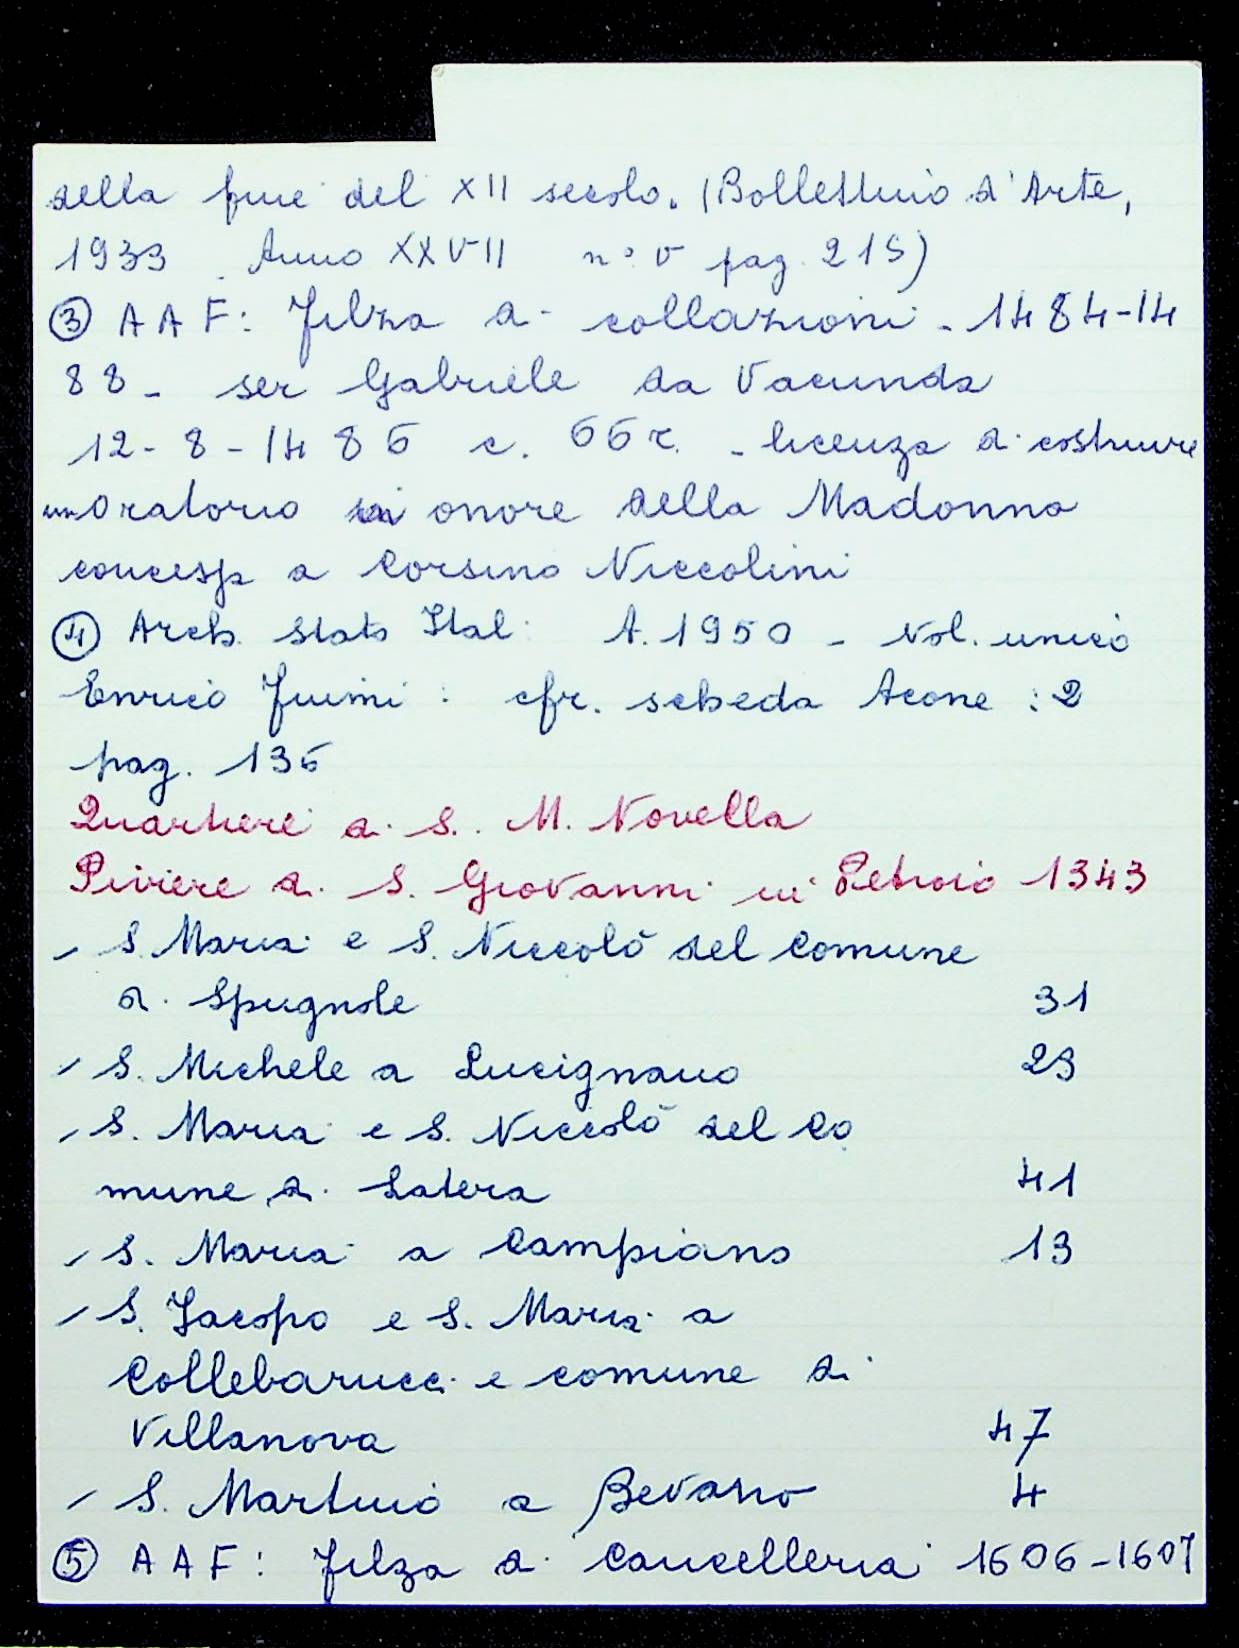 della fine del XII secolo. (Bollettino d'Arte,
1933 Anno XXVII n° V pag. 215)
③ A A F: Filza di collazioni - 1484-14
88 - ser Gabriele da Vacunda
12-8-1486 c. 66r. - licenza di costruire
un Oratorio in onore della Madonna
concessa a Corsino Niccolini
④ Arch. Stato Ital. A. 1950 - Vol. unico
Enrico Fiumi: cfr. scheda Acone: 2
pag. 136
Quartiere di S. M. Novella
Piviere di S. Giovanni in Petroio 1343
- S. Maria e S. Niccolò del Comune
di Spugnole 31
- S. Michele a Lucignano 23
- S. Maria e S. Niccolò del Co
mune di Latera 41
- S. Maria a Campiano 13
- S. Jacopo e S. Maria a
Collebarucci e comune di
Villanova 47
- S. Martino a 4
⑤ A A F: Filza di Cancelleria 1606-1607